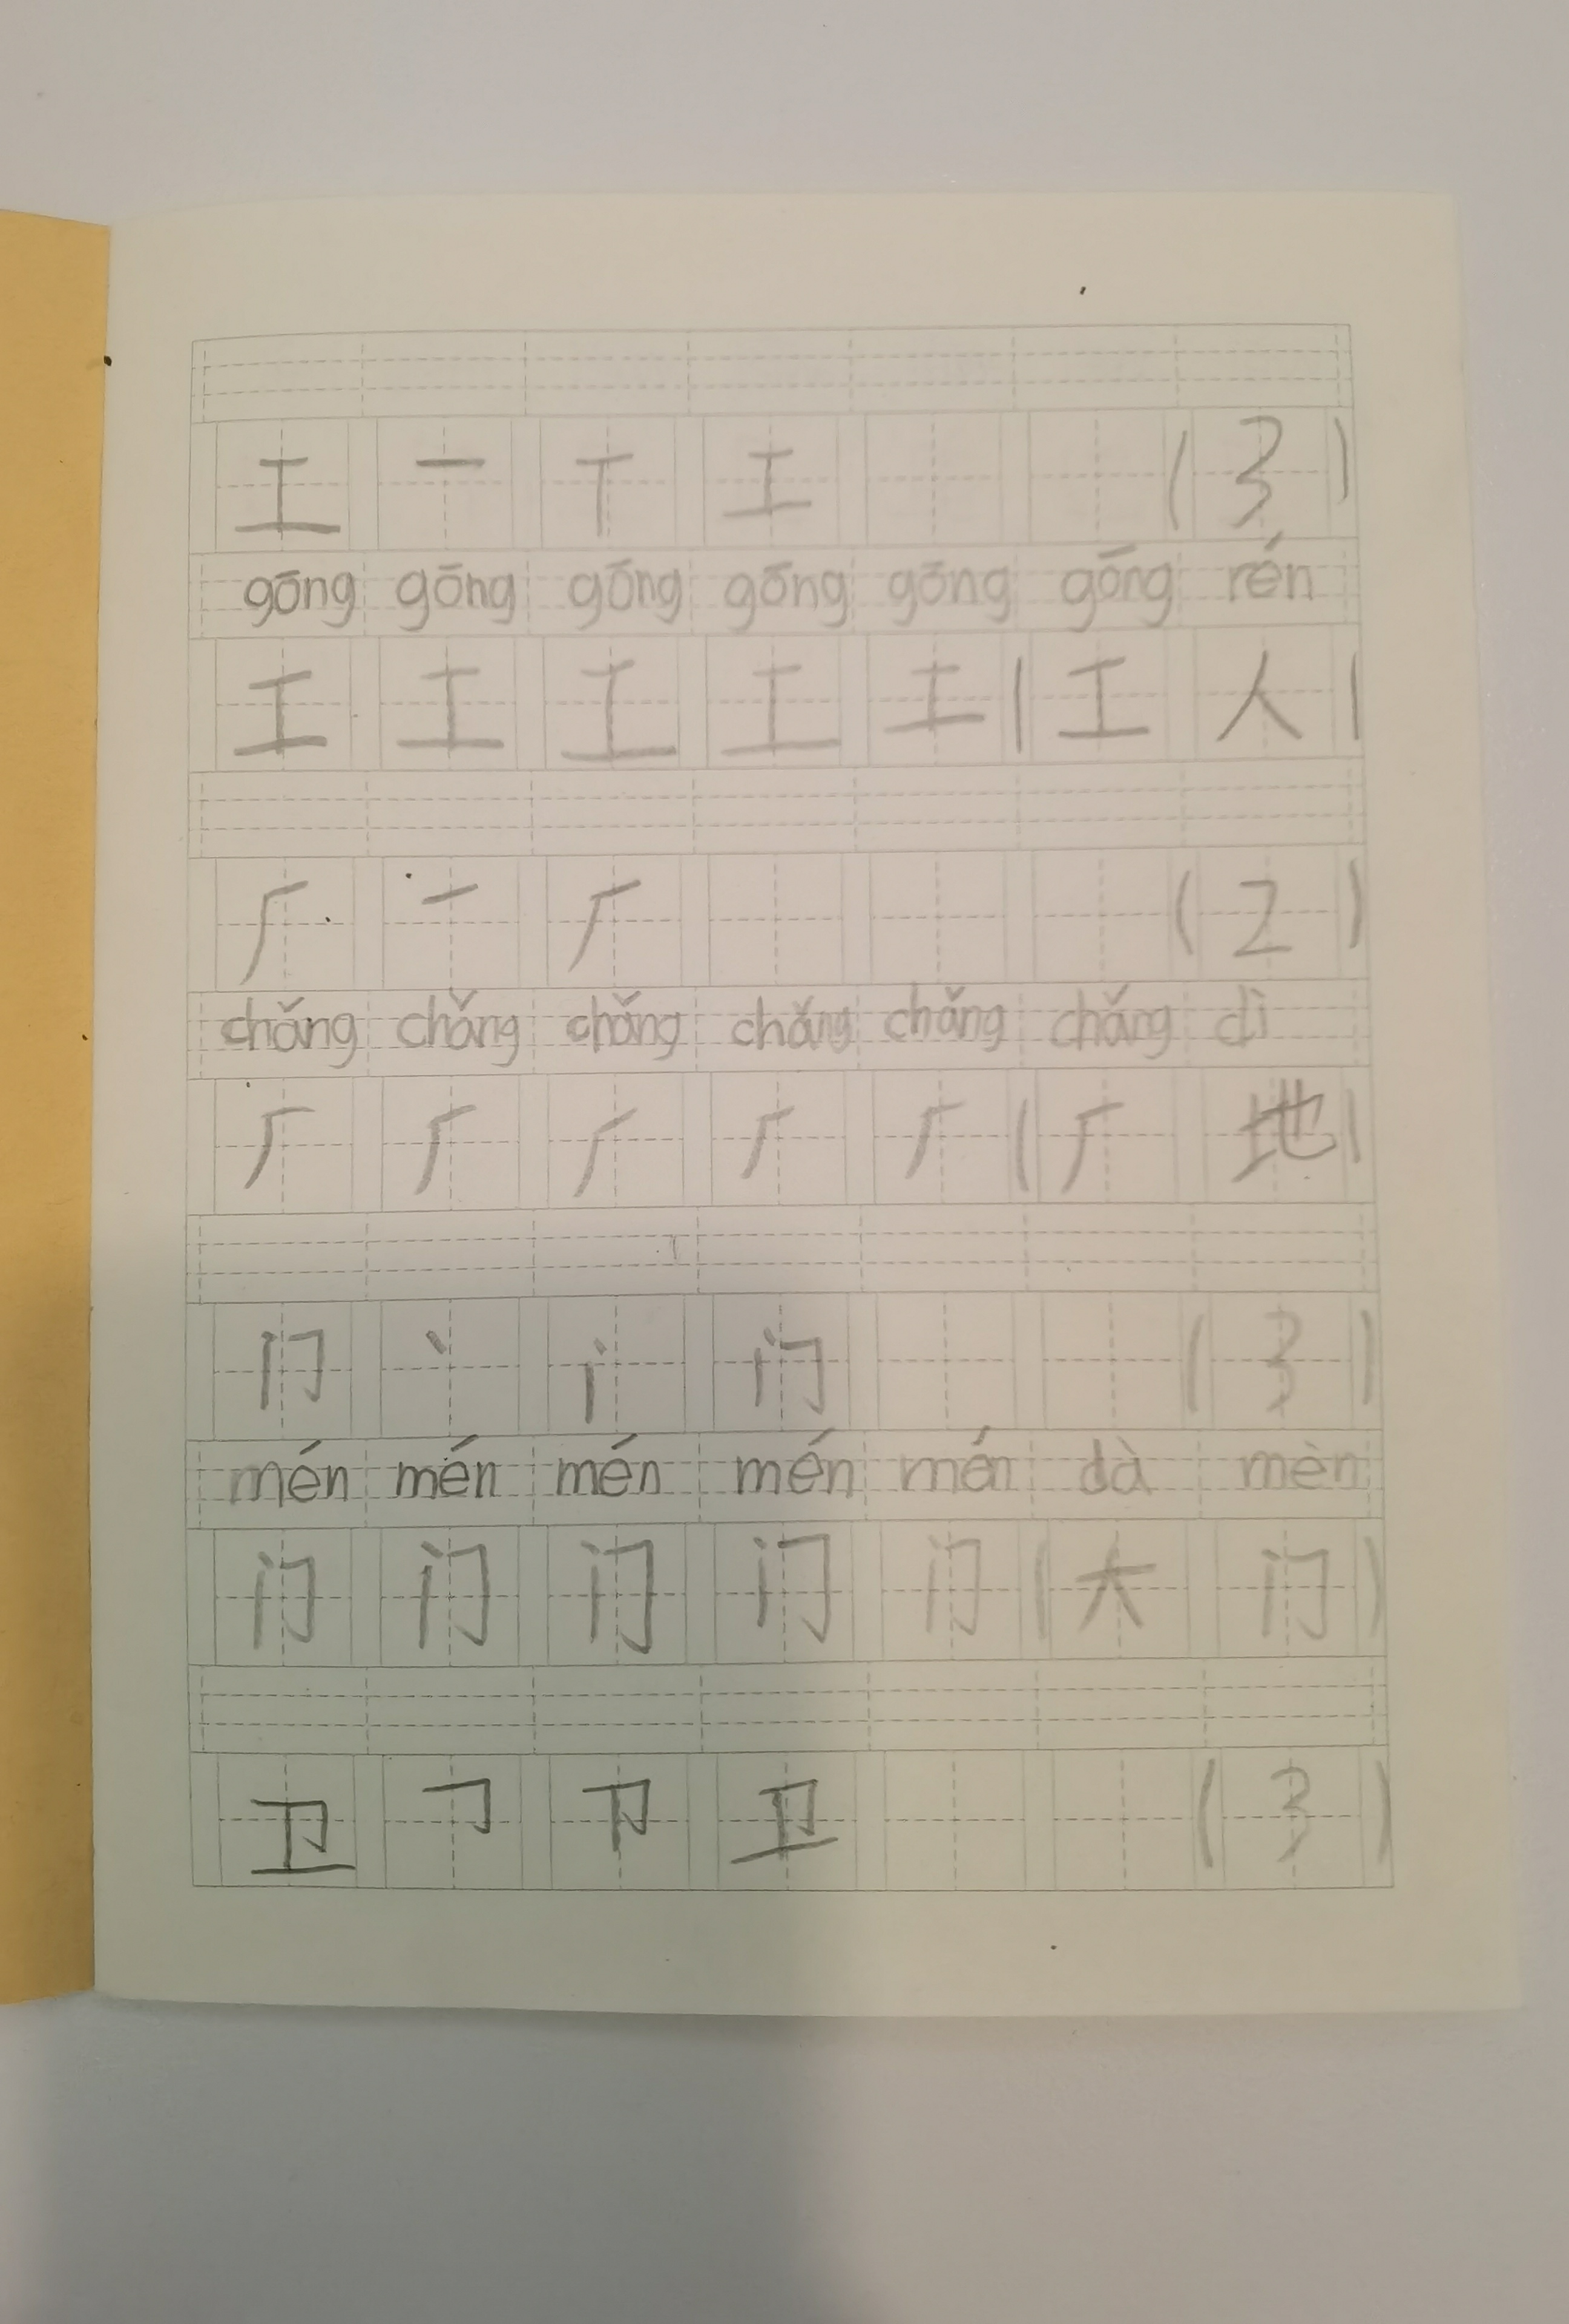 工 一 丅 工 (3)
gōng gōng gōng gōng gōng gōng rén
工 工 工 工 工 (工 人)
厂 一 厂 (2)
chǎng chǎng chǎng chǎng chǎng chǎng dì
厂 厂 厂 厂 厂 (厂 地)
门 丶 门 (3)
mén mén mén mén mén dà mèn
门 门 门 门 门 (大 门)
卫 ㇆ 卫 (3)